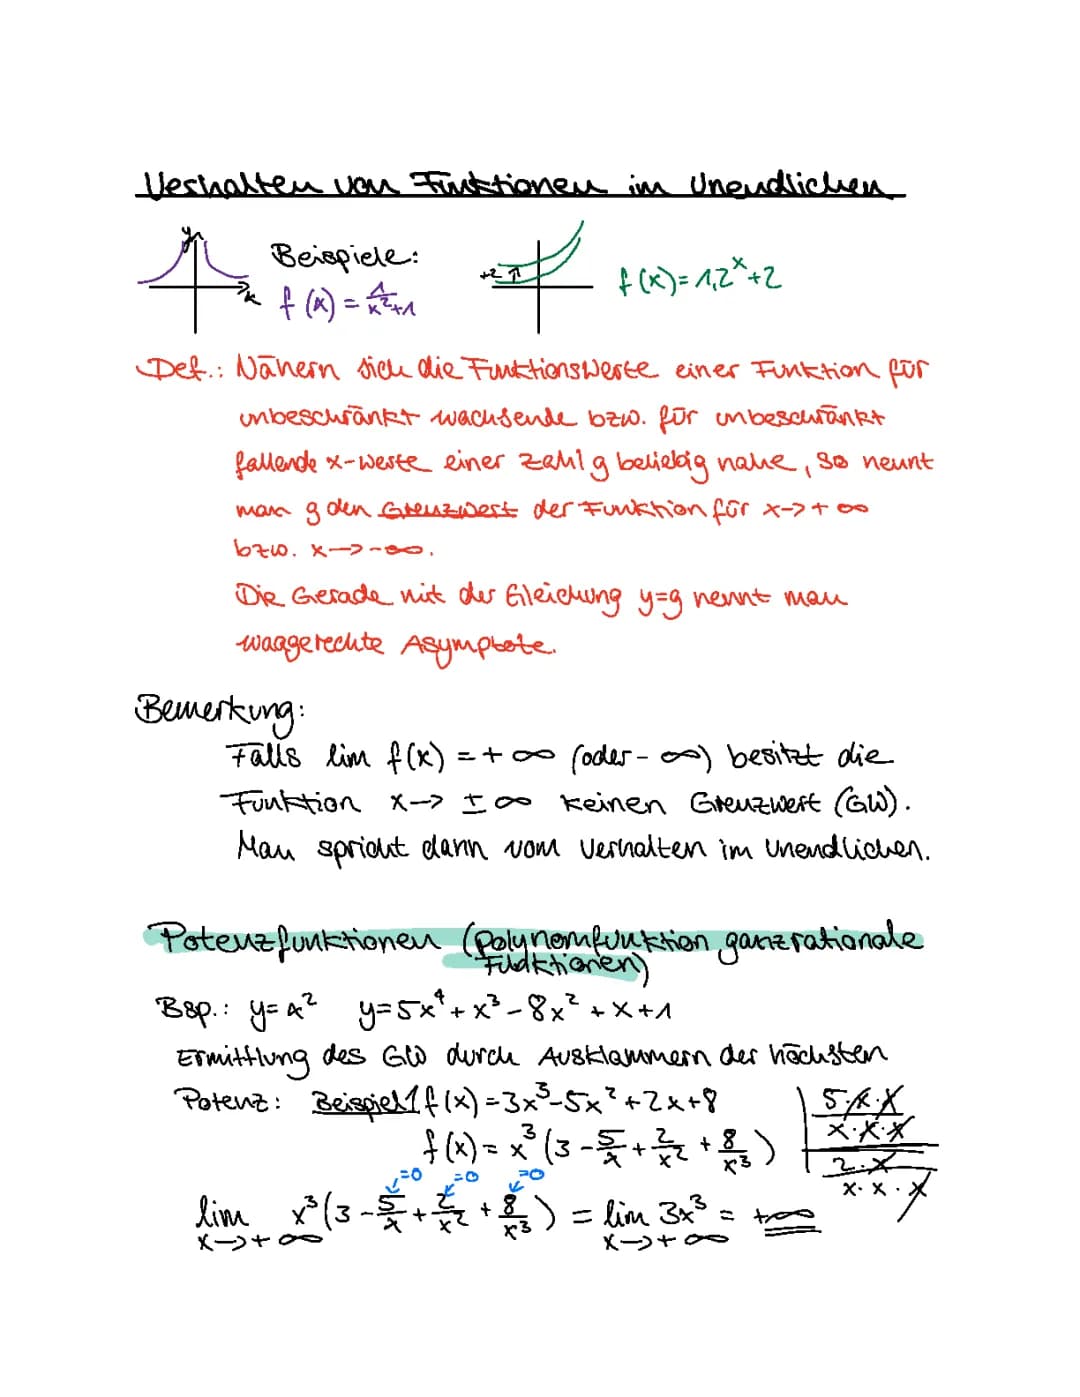 Verhalten von Funktionen im Unendlichen
y
x
Beispiele:
f(x) = 1/x²+1
+2
f(x) = 1,2^x +2
Def.: Nähern sich die Funktionswerte einer Funktion für
unbeschränkt wachsende bzw. für unbeschränkt
fallende x-Werte einer Zahl g beliebig nahe, so nennt
man g den Grenzwert der Funktion für x->+∞
bzw. x->-∞.
Die Gerade mit der Gleichung y=g nennt man
waagerechte Asymptote.
Bemerkung:
Falls lim f(x) = +∞ (oder -∞) besitzt die
Funktion x-> ±∞ keinen Grenzwert (GW).
Man spricht dann vom Verhalten im Unendlichen.
Potenzfunktionen (Polynomfunktion ganzrationale
Funktionen)
Bsp.: y=x² y=5x⁴+x³-8x²+x+1
Ermittlung des GW durch Ausklammern der höchsten
Potenz: Beispiel 1 f(x)=3x³-5x²+2x+8
5·x·x / x·x·x
f(x)= x³(3 - 5/x + 2/x² + 8/x³)
2·x / x·x·x
=0 =0 =0
lim x³(3 - 5/x + 2/x² + 8/x³) = lim 3x³ = +∞
x->+∞ x->+∞